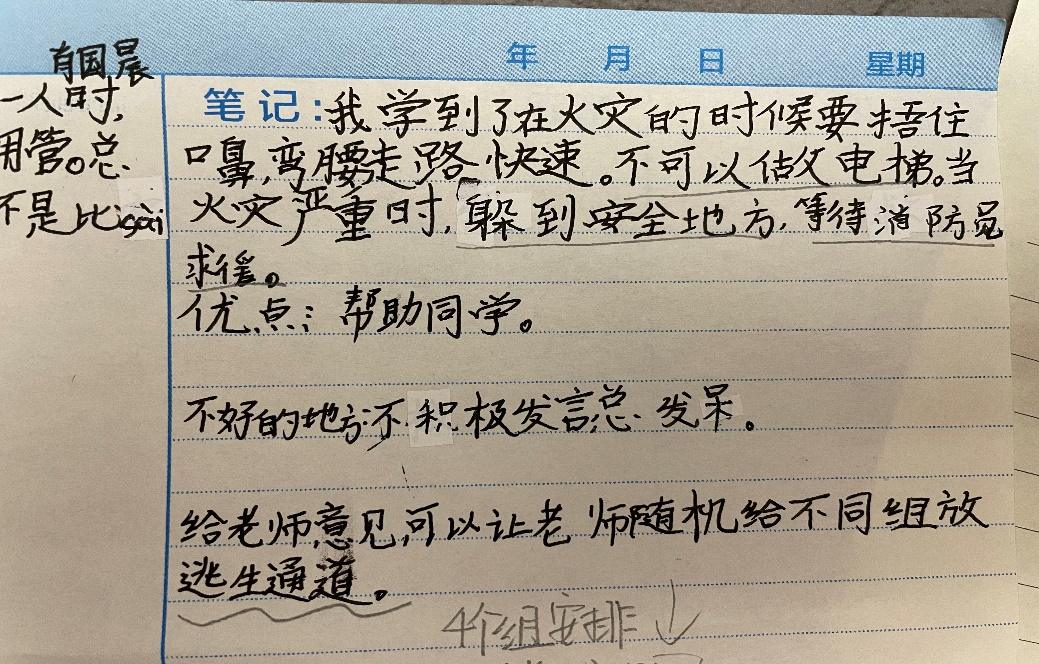 年 月 日 星期
肯国晨
一人时,
用管。总
不是比sài
笔记:我学到了在火灾的时候要捂住
口鼻,弯腰走路快速。不可以做电梯。当
火灾严重时,躲到安全地方,等待消防员
求援。
优点:帮助同学。
不好的地方:不积极发言总发呆。
给老师意见,可以让老师随机给不同组放
逃生通道。
4个组安排↓